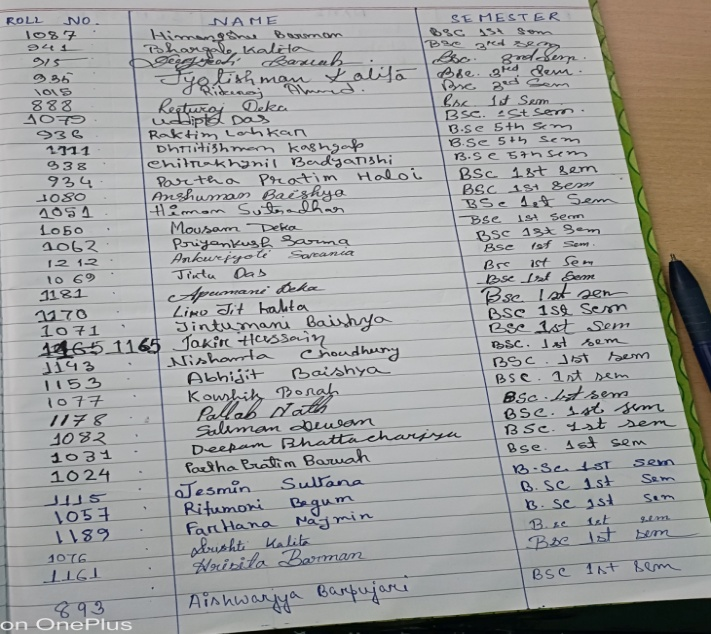 ROLL NO. NAME SEMESTER
1087 Himangshu Barman BSC 1st Sem
941 Bhargab Kalita BSc 3rd sem
915 Baruah BSc. 3rd Sem.
936 Jyotishman Kalita Bsc. 3rd Sem.
1015 Ahmed. Bsc 3rd Sem
888 Rectuvaj Deka Bsc 1st Sem
1079 Uddipta Das BSC. 1st sem.
936 Raktim Lahkar B.Sc 5th Sem
1111 Dhritishman Kashyap B.Sc 5th Sem
938 B.SC 5th sem
934 Partha Pratim Haloi BSC 1st sem
1080 Anshuman Baishya BSC 1st sem
1051 Himam Sutradhar BSc 1st Sem
1050 Mousam Deka BSC 1st Sem
1062 Priyankush Sarma BSC 1st Sem
1212 Ankurjyoti Bsc 1st Sem.
1069 Jintu Das Bsc 1st Sem
1181 Apumani Deka Bsc 1st Sem
1170 Jit kalita Bsc 1st sem
1071 Jintumani Baishya BSC 1st Sem
1165 Jakir Hussain Bsc 1st Sem
1143 Nishanta Choudhury BSC. 1st sem
1153 Abhijit Baishya BSC. 1st sem
1077 Koushik Borah BSC. 1st sem
1178 Pallab Nath BSc. 1st sem
1082 Salman Dewan BSC. 1st sem
1031 Deepam Bhattacharjya BSC. 1st sem
1024 Partha Pratim Baruah BSc. 1st sem
1115 Jesmin Sultana B.Sc. 1st sem
1057 Ritumoni Begum B.SC 1st Sem
1189 Farhana Najmin B.SC 1st Sem
1076 Kalita B.Sc 1st sem
1161 Barman Bsc 1st sem
893 Aishwarjya Barpujari BSC 1st Sem
on OnePlus